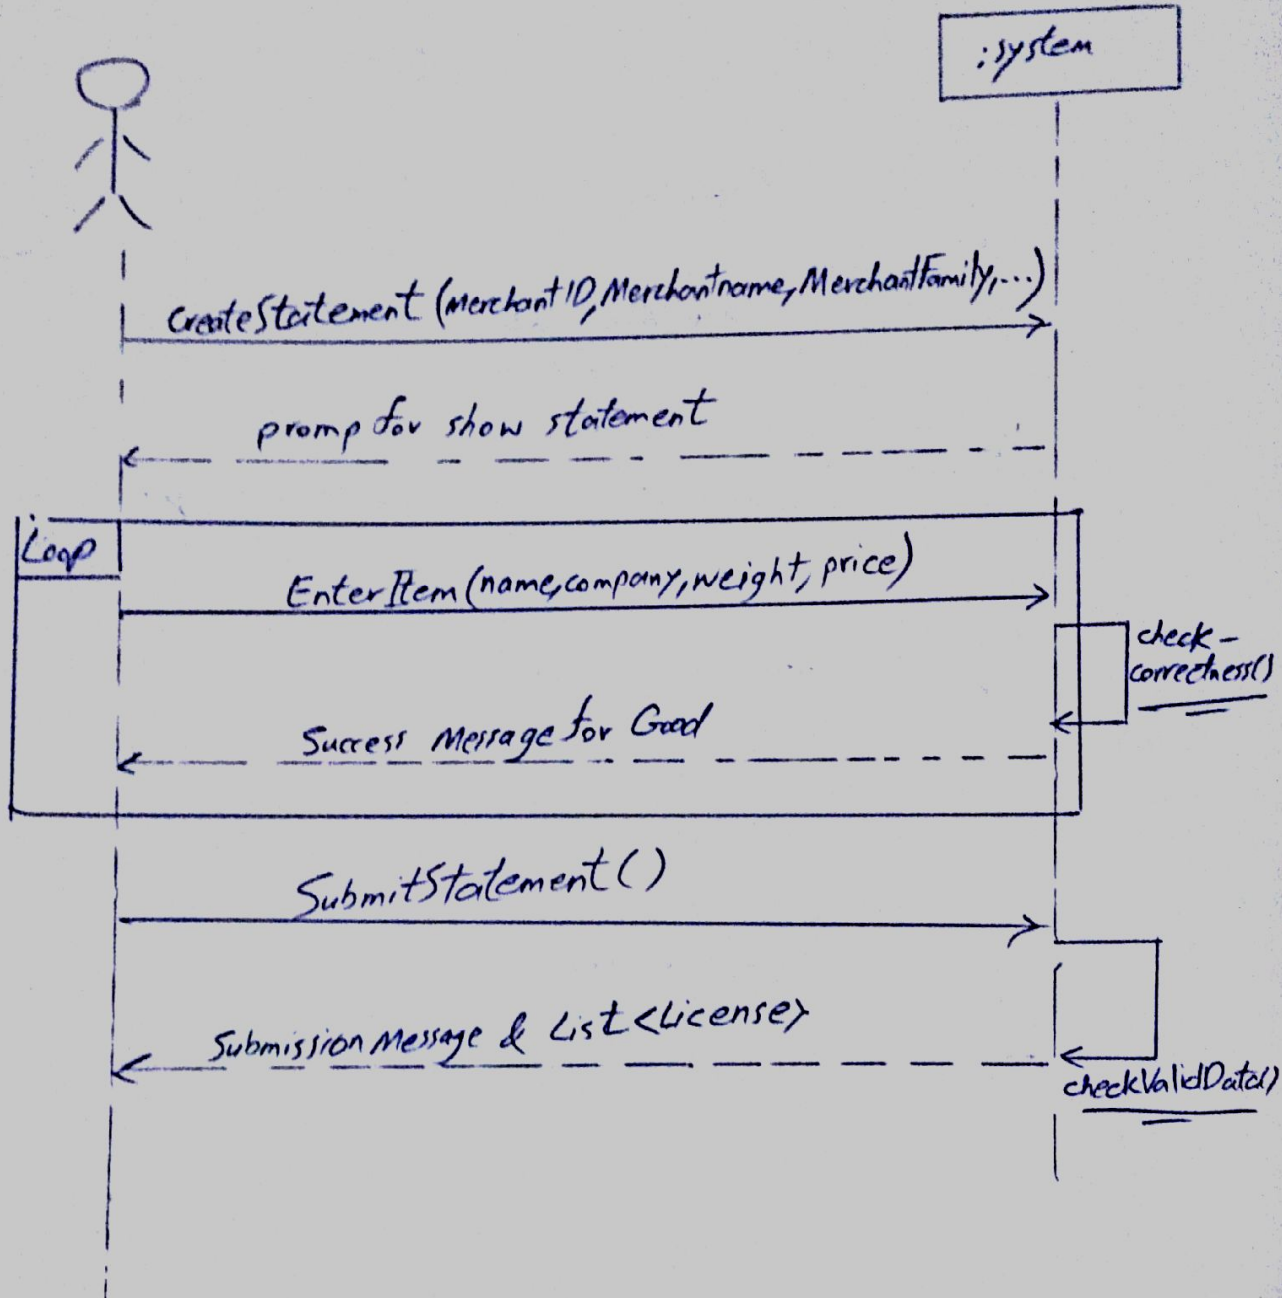 :system
createStatement (MerchantID, Merchantname, MerchantFamily, ...)
promp for show statement
Loop
EnterItem (name, company, weight, price)
check-
correctness()
Success Message for Good
SubmitStatement ()
Submission Message & List<License>
checkValidData()